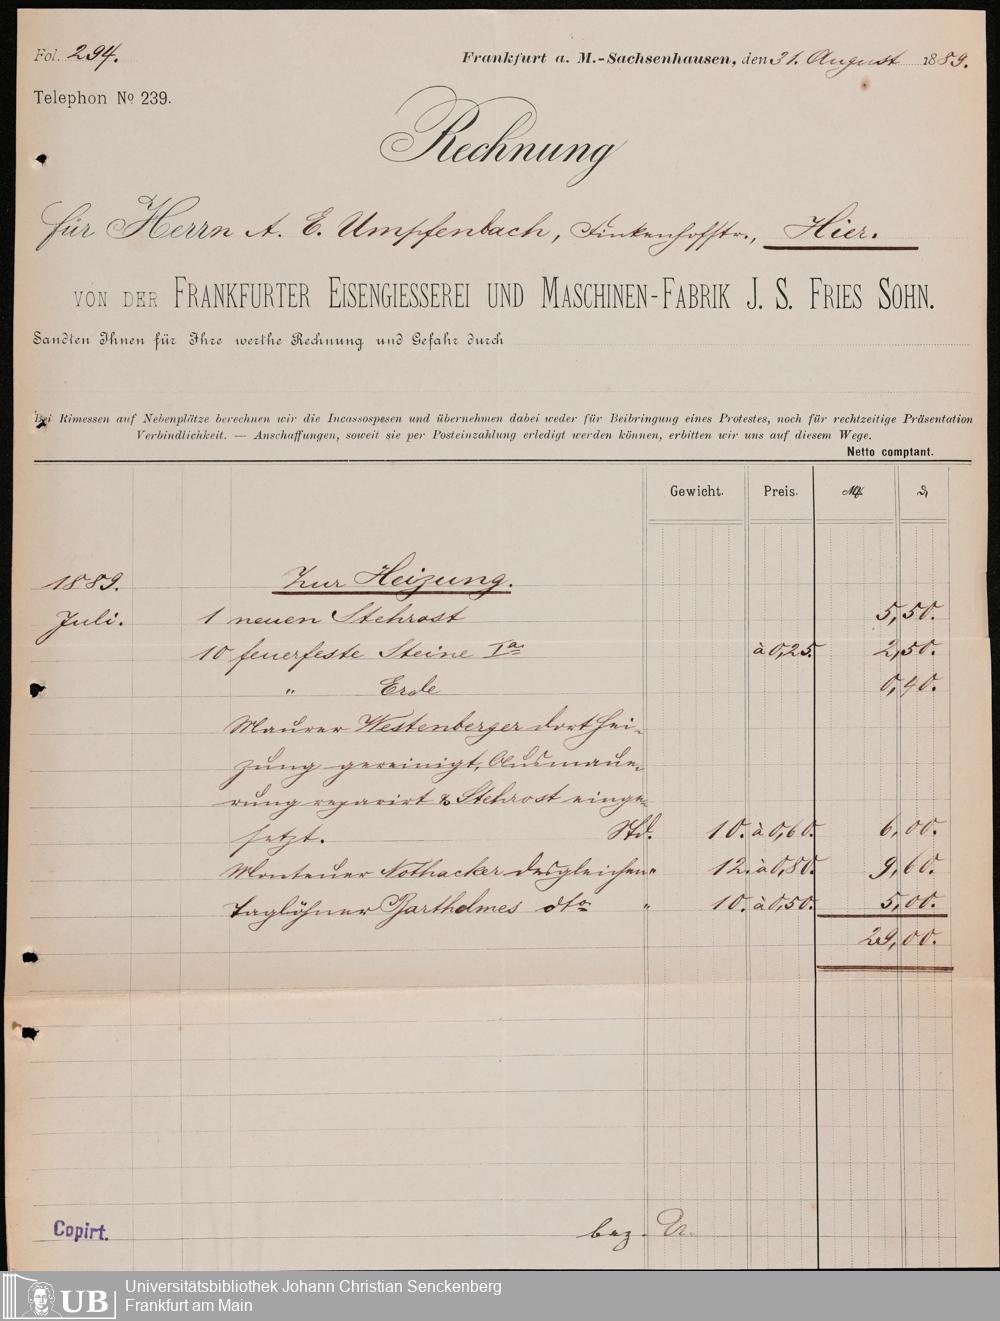 Fol. 294.
Frankfurt a. M.-Sachsenhausen, den 31. August 1889.
Telephon No 239.
Rechnung
für Herrn A. E. Umpfenbach, Finkenhofstr., Hier.
VON DER FRANKFURTER EISENGIESSEREI UND MASCHINEN-FABRIK J. S. FRIES SOHN.
Sandten Ihnen für Ihre werthe Rechnung und Gefahr durch
Bei Rimessen auf Nebenplätze berechnen wir die Incassospesen und übernehmen dabei weder für Beibringung eines Protestes, noch für rechtzeitige Präsentation
Verbindlichkeit. — Anschaffungen, soweit sie per Posteinzahlung erledigt werden können, erbitten wir uns auf diesem Wege.
Netto comptant.
Gewicht. Preis. M. ₰
1889. Zur Heizung.
Juli. 1 neuen Stehrost 5,50.
10 feuerfeste Steine Ia à 0,25. 2,50.
" Erde 0,40.
Maurer Westenberger dort Hei-
zung gereinigt, Ausmaue-
rung reparirt & Stehrost einge-
setzt. Std. 10. à 0,60. 6,00.
Monteuer Nothacker desgleichen " 12. à 0,80. 9,60.
Taglöhner Bartholmes dto " 10. à 0,50. 5,00.
29,00.
Copirt.
bez.
UB
Universitätsbibliothek Johann Christian Senckenberg
Frankfurt am Main